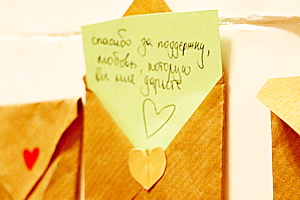 спасибо за поддержку,
любовь, которую
вы мне дарите